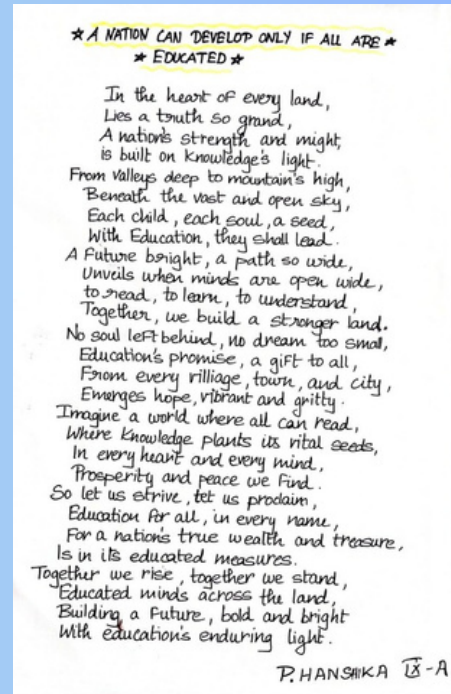 ★ A NATION CAN DEVELOP ONLY IF ALL ARE ★
★ EDUCATED ★
In the heart of every land,
Lies a truth so grand,
A nation's strength and might,
is built on knowledge's light.
From valleys deep to mountain's high,
Beneath the vast and open sky,
Each child, each soul, a seed,
With Education, they shall lead.
A Future bright, a path so wide,
Unveils when minds are open wide,
to read, to learn, to understand,
Together, we build a stronger land.
No soul left behind, no dream too small,
Education's promise, a gift to all,
From every villiage, town, and city,
Emerges hope, vibrant and gritty.
Imagine a world where all can read,
Where knowledge plants its vital seeds,
In every heart and every mind,
Prosperity and peace we Find.
So let us strive, let us proclaim,
Education for all, in every name,
For a nation's true wealth and treasure,
Is in its educated measures.
Together we rise, together we stand,
Educated minds across the land,
Building a Future, bold and bright
With education's enduring light.
P. HANSHIKA IX-A